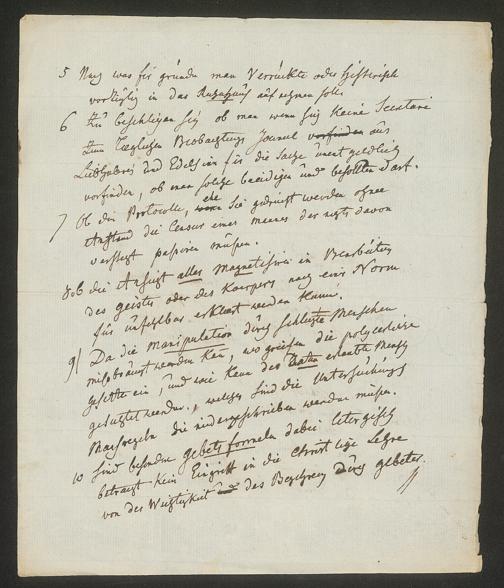 5 Nach was für gründen man Verrückte oder Histerisch
vorzüglich in das Ruhehaus aufnehmen solle.
6 Zu beschliesen sey ob man wenn sich keine Secretaire
zum Täglichen Beobachtungs Journal vorfinden aus
Liebhaberei und Edelsinn für die Sache unentgeldlich
vorfinden, ob man solche beeidigen und besolden darf.
7 Ob die Protocolle, ehe Sie gedruckt werden ohne
Anstand die Censur eines der nichts davon
versteht passiren müssen.
8 ob die Ansicht alles Magnetisirens in Bearbeitung
des geistes oder des Koerpers nach einer Norm
für unfehlbar erklärt werden kann.
9 Da die Manipulation durch schlechte Menschen
misbraucht werden kan, wo greifen die polyceiliche
gesetze ein, und wie kann der erlaubte Mensch
geschützt werden, welches sind die Untersuchungs
Maasregeln die niedergeschrieben werden müssen.
10 Sind besondre gebets formeln dabei
betracht kein Eingriff in die Christliche Lehre
von der Wichtigkeit der durch gebeter.